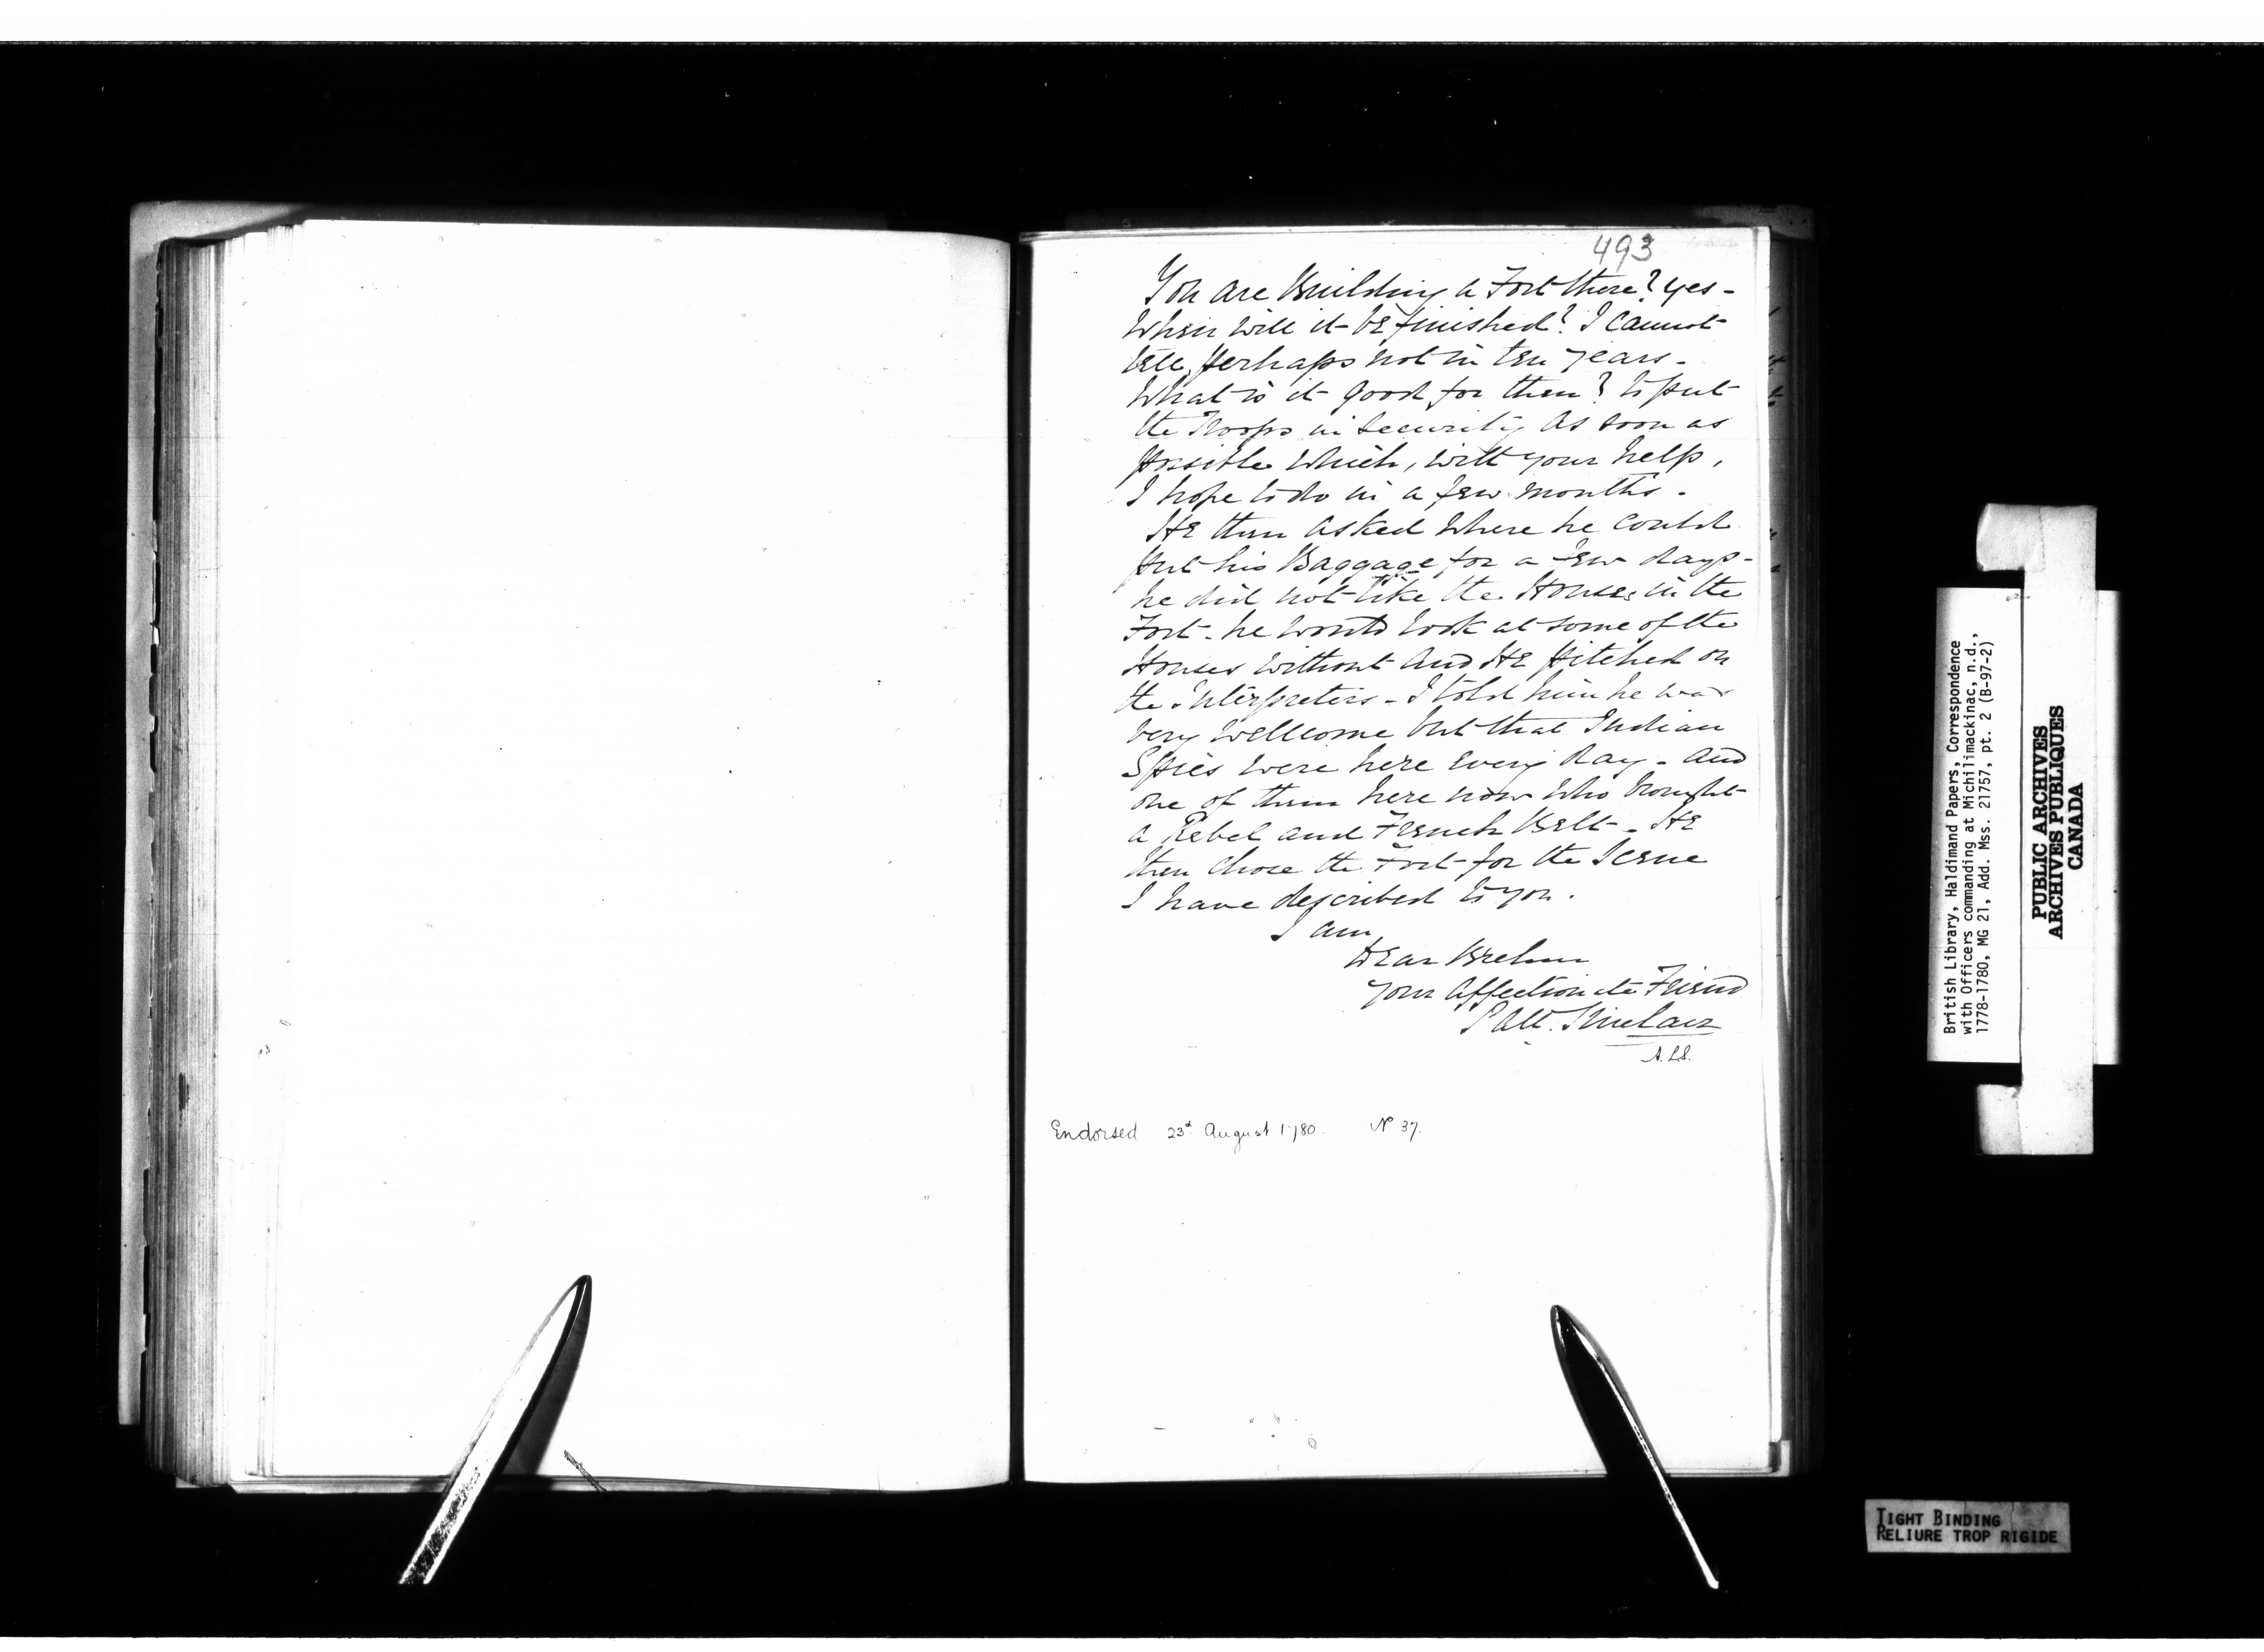 493
You are Building a Fort there? yes -
When will it be finished? I cannot
tell, perhaps not in ten years -
What is it good for then? to put
the Troops in Security as soon as
possible which, with your help,
I hope to do in a few months.
HE then asked where he could
put his Baggage for a few days -
he did not like the Houses in the
Fort - he would look at some of the
Houses without and HE pitched on
the Interpreters - I told him he was
very wellcome but that Indian
Spies were here every day - and
one of them here now who brought
a Rebel and French Belt - HE
then chose the Fort for the Scene
I have described to you.
I am
Dear Brehm
your affectionate Friend
Patt. Sinclair
A.L.S.
Endorsed 23d August 1780. No 37.
British Library, Haldimand Papers, Correspondence
with Officers commanding at Michilimackinac, n.d.,
1778-1780, MG 21, Add. Mss. 21757, pt. 2 (B-97-2)
PUBLIC ARCHIVES
ARCHIVES PUBLIQUES
CANADA
TIGHT BINDING
RELIURE TROP RIGIDE